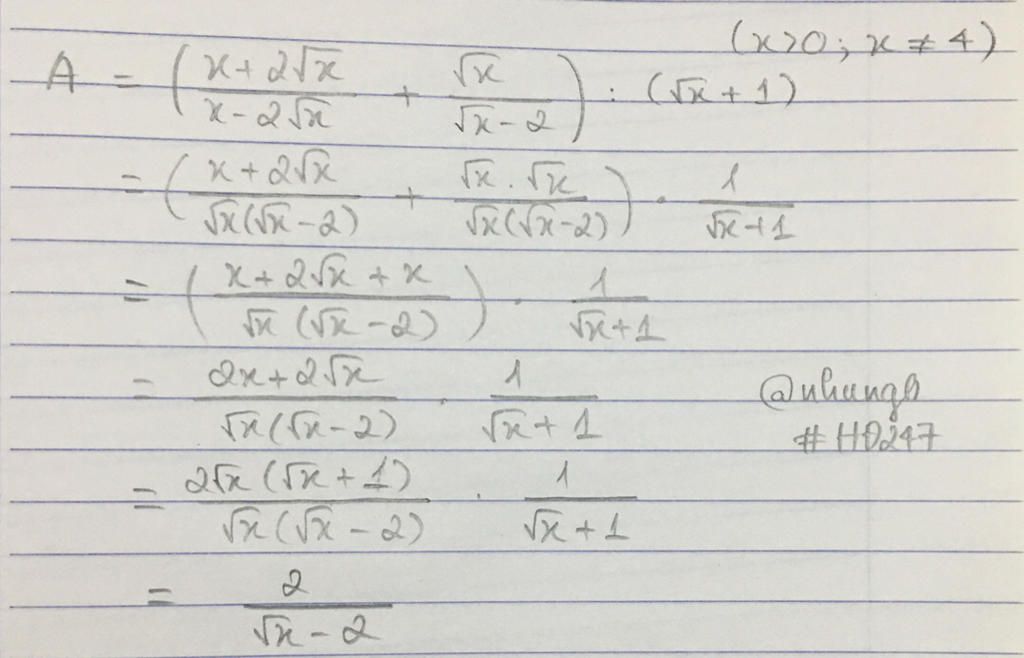 (x>0; x ≠ 4)
A = ( (x+2√x)/(x-2√x) + √x/(√x-2) ) : (√x+1)
= ( (x+2√x)/(√x(√x-2)) + (√x.√x)/(√x(√x-2)) ) . 1/(√x+1)
= ( (x+2√x+x)/(√x(√x-2)) ) . 1/(√x+1)
= (2x+2√x)/(√x(√x-2)) . 1/(√x+1)
@nhungb
#HD247
= (2√x(√x+1))/(√x(√x-2)) . 1/(√x+1)
= 2/(√x-2)